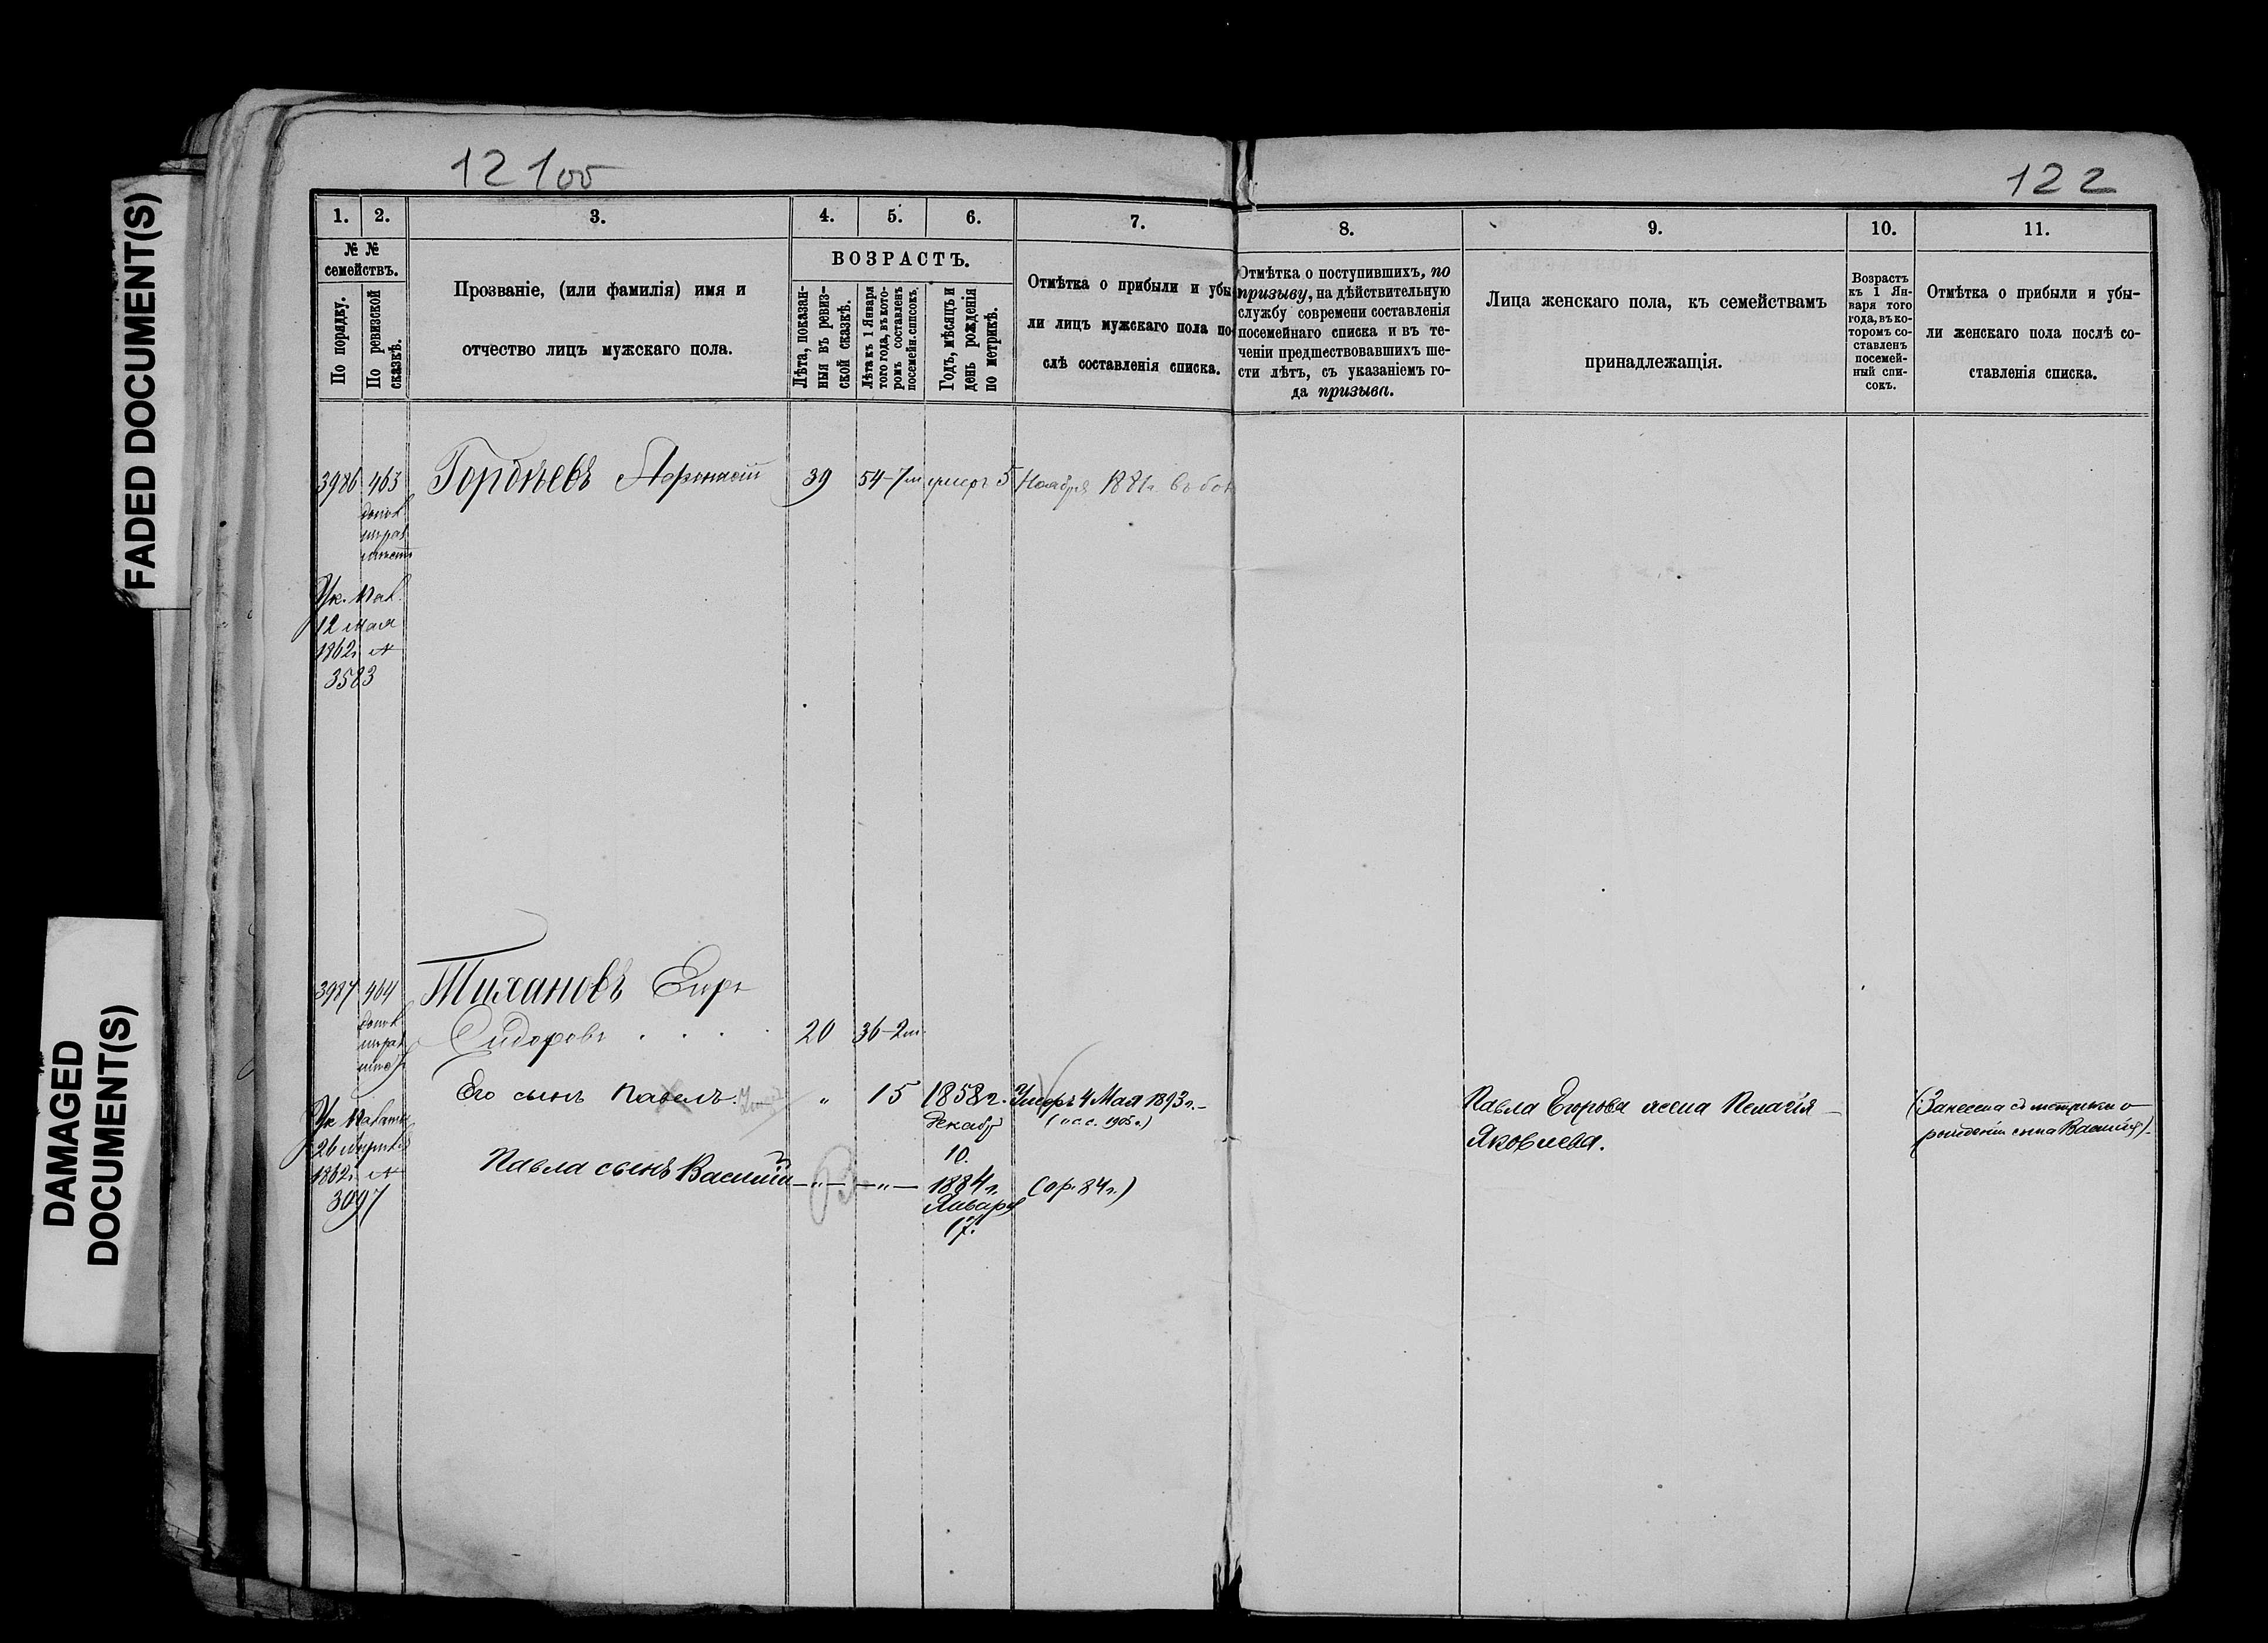 FADED DOCUMENT(S)
DAMAGED
DOCUMENT(S)
121об
122
1.
2.
3.
4.
5.
6.
7.
8.
9.
10.
11.
№ №
семействъ.
По порядку.
По ревизской
сказкѣ.
Прозваніе, (или фамилія) имя и
отчество лицъ мужскаго пола.
ВОЗРАСТЪ.
Лѣта, показан-
ныя въ ревиз-
ской сказкѣ.
Лѣта къ 1 Января
того года, въ кото-
ромъ составленъ
посемейн. списокъ.
Годъ, мѣсяцъ и
день рожденія
по метрикѣ.
Отмѣтка о прибыли и убы
ли лицъ мужскаго пола по-
слѣ составленія списка.
Отмѣтка о поступившихъ, по
призыву, на дѣйствительную
службу современи составленія
посемейнаго списка и въ те-
ченіи предшествовавшихъ ше-
сти лѣтъ, съ указаніемъ го-
да призыва.
Лица женскаго пола, къ семействамъ
принадлежащія.
Возрастъ
къ 1 Ян-
варя того
года, въ ко-
торомъ со-
ставленъ
посемей-
ный спи-
сокъ.
Отмѣтка о прибыли и убы-
ли женскаго пола послѣ со-
ставленія списка.
3986 463 Гордѣевъ 39 54-7м умеръ 5 Ноября
Ук. Пал.
12 мая
1862г. №
3583
3987 464 Тихановъ Егоръ
Сидоровъ 20 36-2м
Его сынъ Павелъ " 15 1858г. Умеръ 4 Мая 1893г.-
Декабр (п.с.с. 1905г.)
10.
Павла Егорова жена Пелагія
Яковлева.
(Занесена съ метрики о
рожденіи сына Василія).
Ук Палаты
26 Апрѣля
1862г. №
3097
Павла сынъ Василій -"- В -"- 1884г. (ор. 84г.)
Января
17.